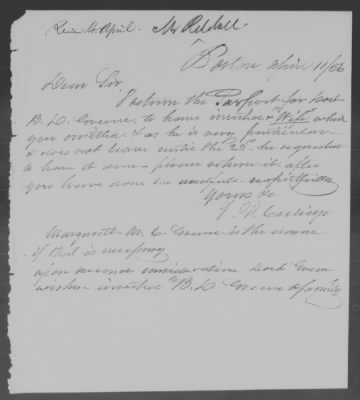 Rec 14 April. Mr Reddall.
Boston April 11/56
Dear Sir
I return the Passport for Doct
B. D. Greene, to have inserted & Wife which
you omitted & as he is very particular
& does not leave until the 23d he requested
to have it done - please return it after
you have done it
Yours &c
Coolidge
Margarett M. C. Greene is the name
if that is necessary
upon second consideration Doct Green
wishes inserted "B. D Greene & family